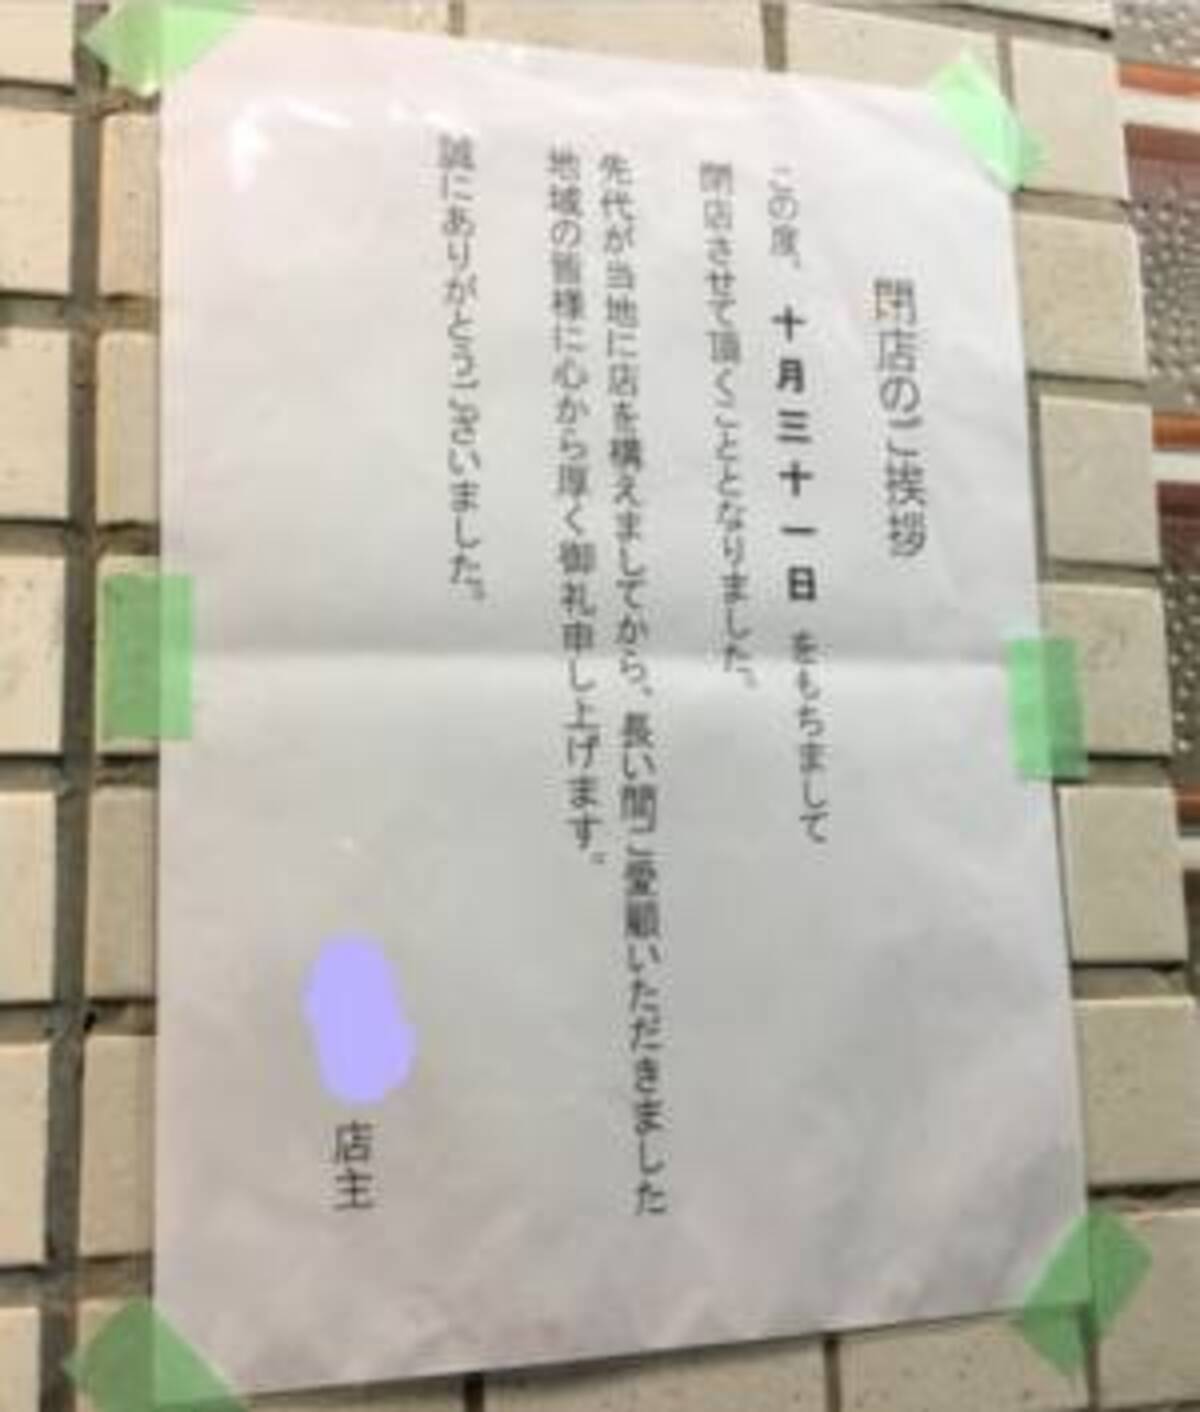 閉店のご挨拶
この度、十月三十一日をもちまして
閉店させて頂くこととなりました。
先代が当地に店を構えましてから、長い間ご愛顧いただきました
地域の皆様に心から厚く御礼申し上げます。
誠にありがとうございました。
店主